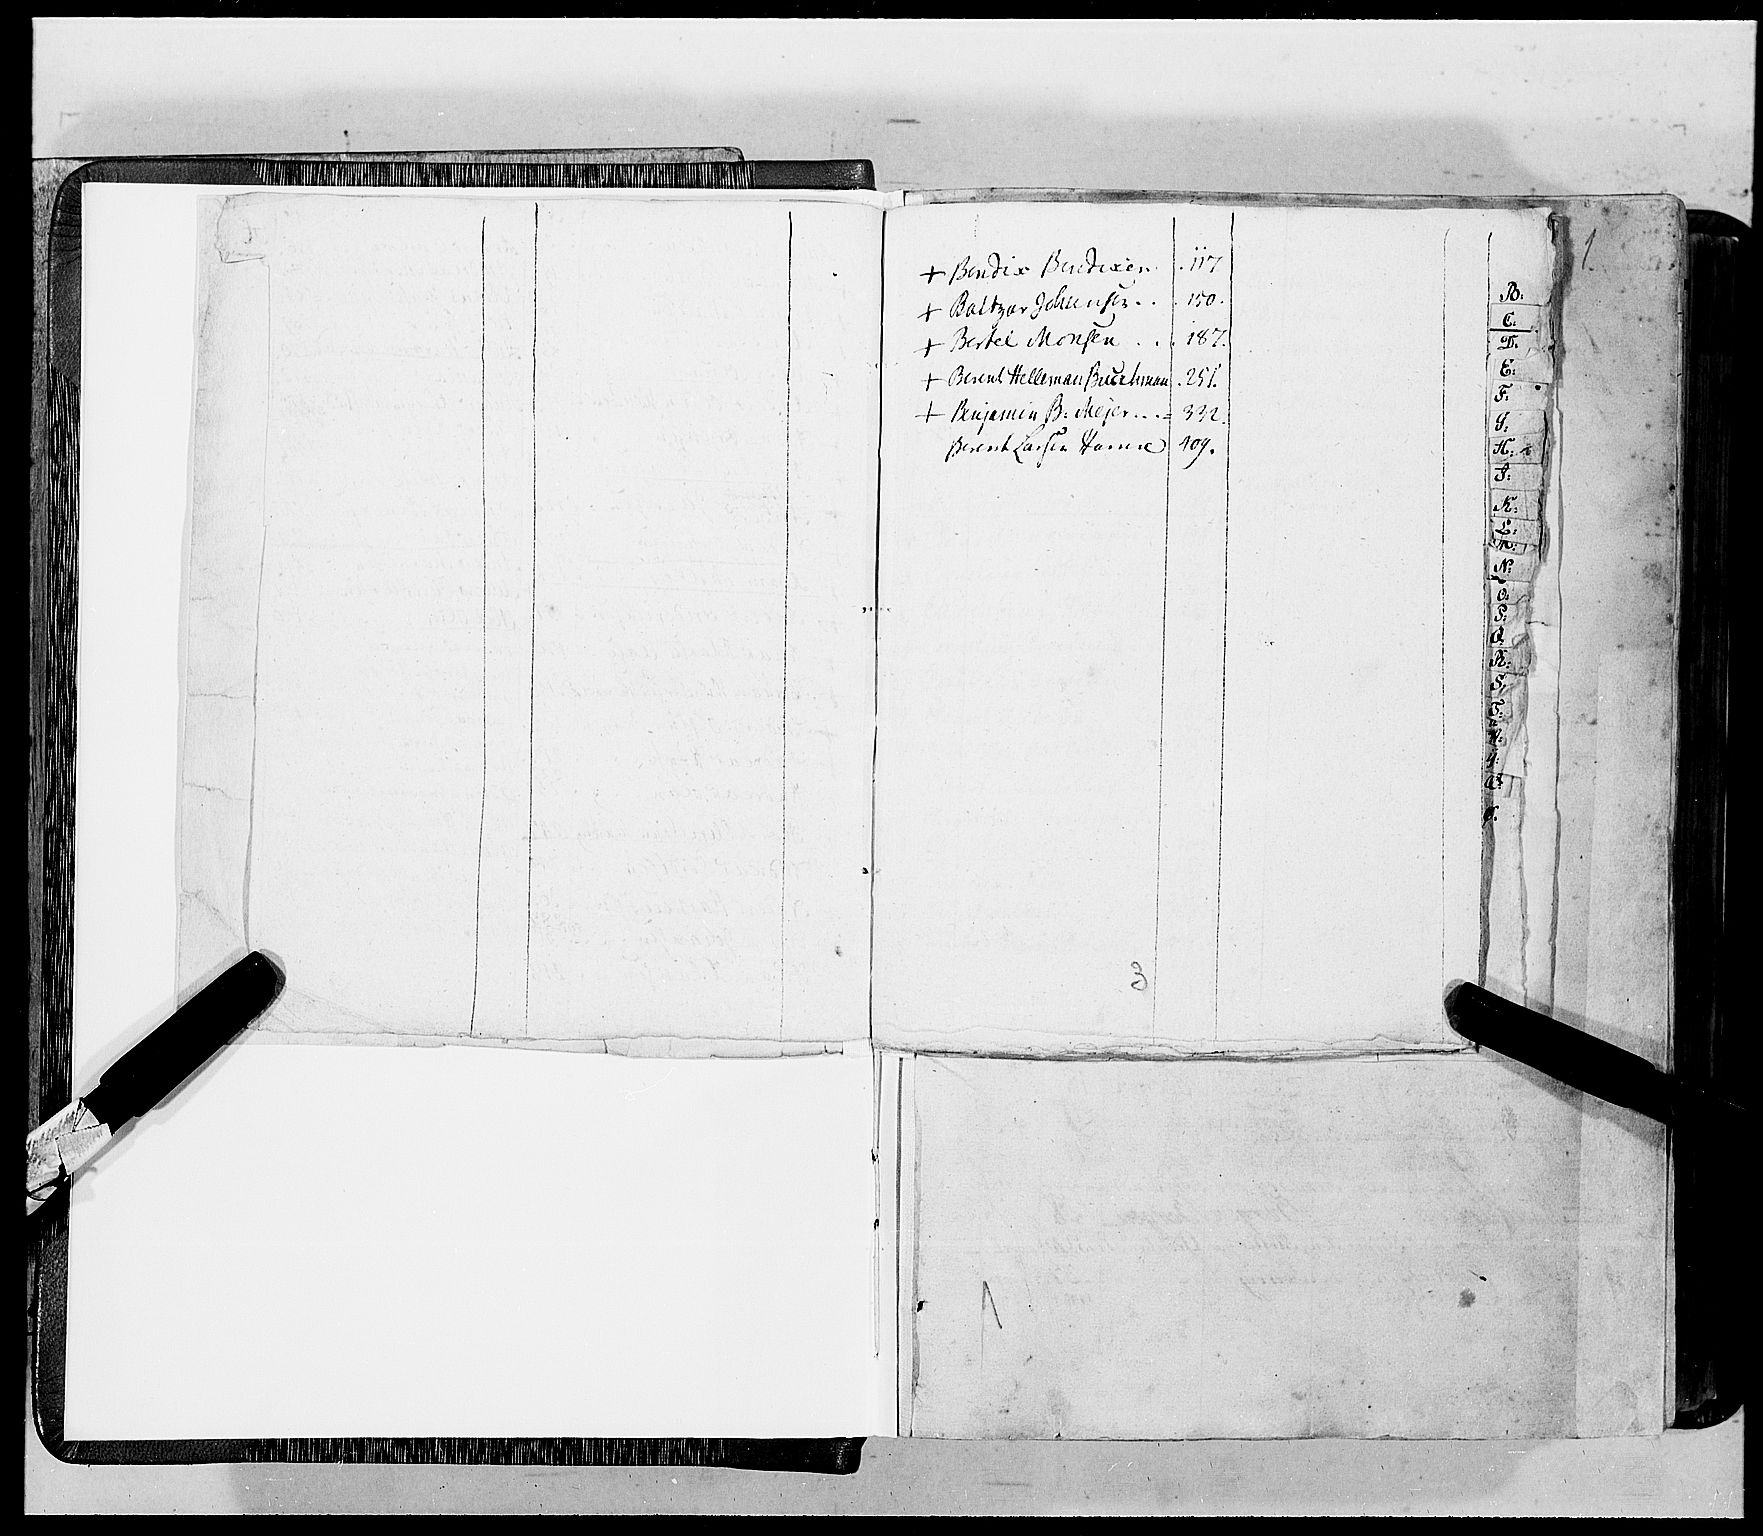 + Bendix Bendixen . 117
+ Baltzar Johansen . . . 150.
+ Bertel Monsen . . . 187.
+ Berent Helleman Buschman . 251.
+ Benjamin B: Mejer . . . = 332.
Berent Larsen 409.
3
1
1
B:
C:
D:
E:
F:
G:
H:
I:
K:
L:
M:
N:
O:
P:
Q:
R:
S:
T: